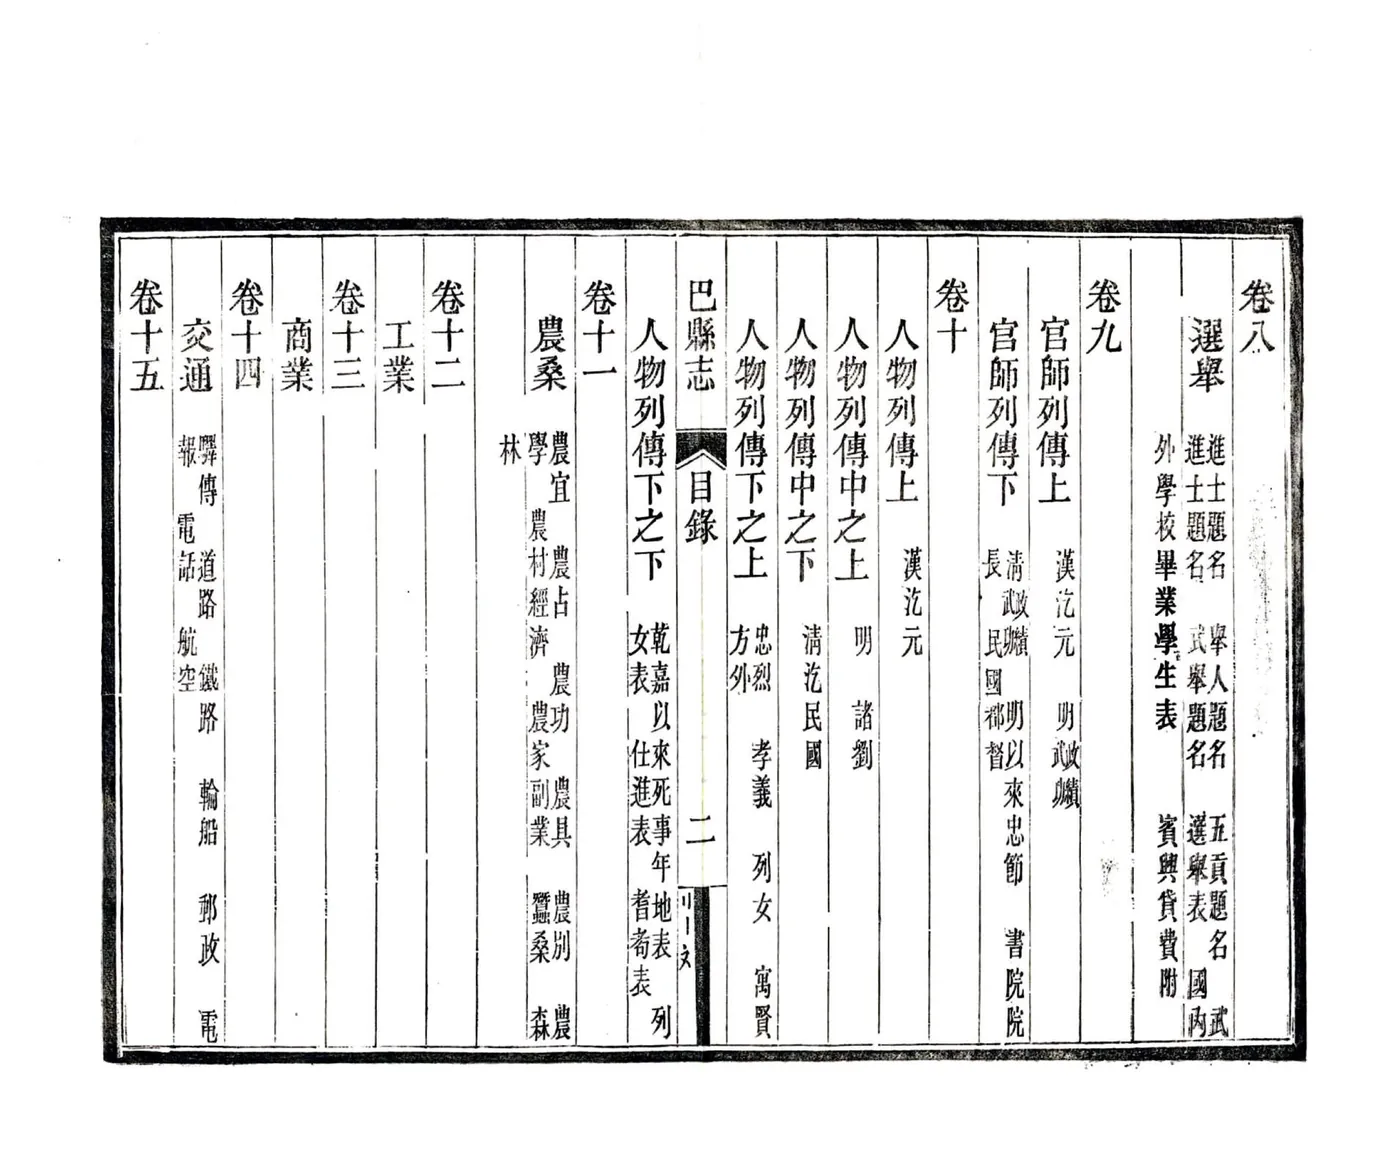 卷八
選舉 進士題名 舉人題名 五貢題名 武
進士題名 武舉題名 選舉表 國內
外學校畢業學生表 賓興貸費附
卷九
官師列傳上 漢汔元 明政績武功
官師列傳下 清政績武功 明以來忠節 書院院
長 民國都督
卷十
人物列傳上 漢汔元
人物列傳中之上 明 諸劉
人物列傳中之下 清汔民國
人物列傳下之上 忠烈 孝義 列女 寓賢
方外
巴縣志 目錄 二
人物列傳下之下 乾嘉以來死事年地表 列
女表 仕進表 耆耇表
卷十一
農桑 農宜 農占 農功 農具 農別 農
學 農村經濟 農家副業 蠶桑 森
林
卷十二
工業
卷十三
商業
卷十四
交通 驛傳 道路 鐵路 輪船 郵政 電
報 電話 航空
卷十五